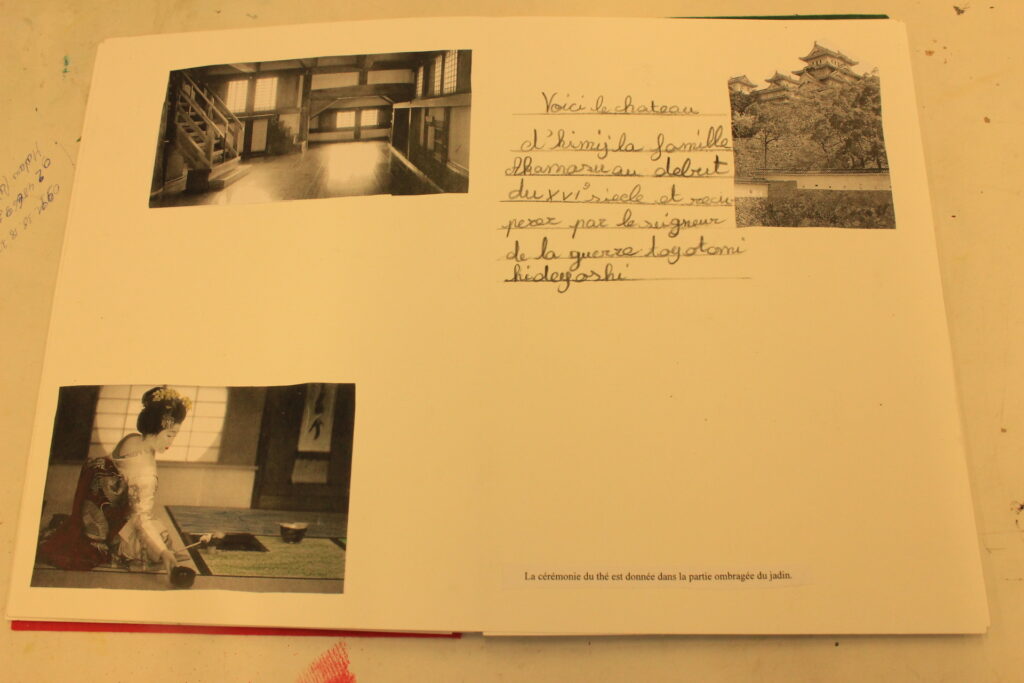 Voici le chateau
d'himij la famille
Akamasu au debut
du XVIe siecle et recu
perer par le seigneur
de la guerre toyotomi
hideyoshi
La cérémonie du thé est donnée dans la partie ombragée du jadin.